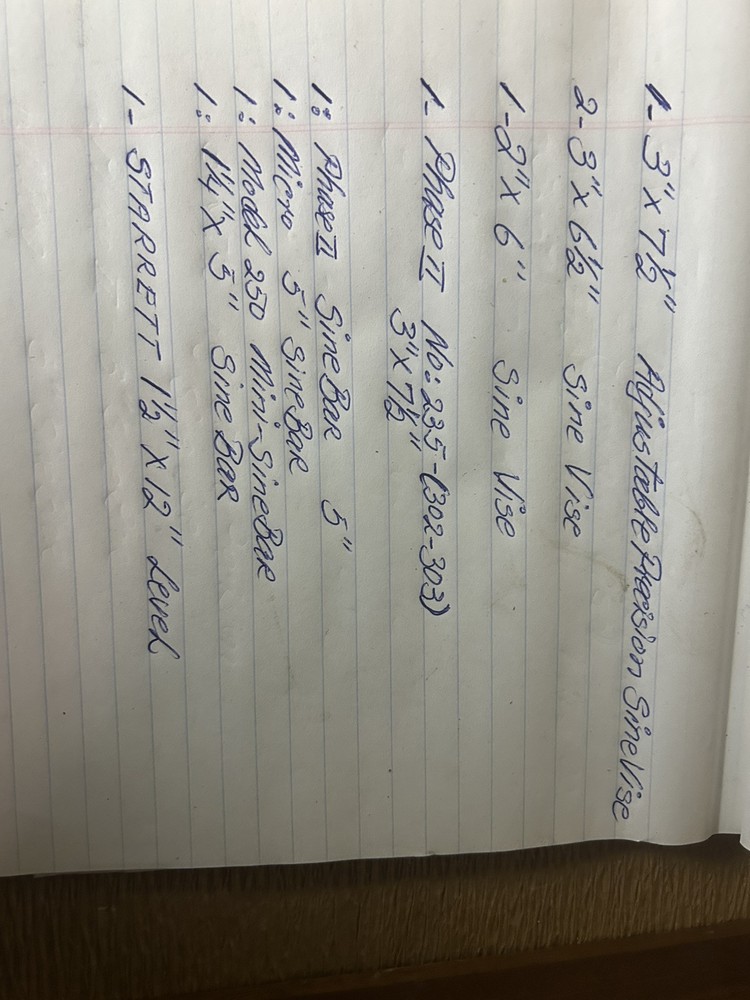 1- 3" x 7½" Adjustable Precision Sine Vise
2- 3" x 6½" Sine Vise
1- 2" x 6" Sine Vise
1- Phase II No: 235-(302-303)
3" x 7½"
1: Phase II Sine Bar 5"
1: Micro 5" Sine Bar
1: Model 250 Mini-Sine Bar
1: 1¼" x 5" Sine Bar
1- STARRETT 1½" x 12" Level